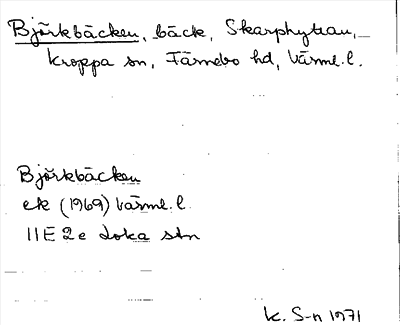 Björkbäcken, bäck, Skarphyttan,
Kroppa sn, Färnebo hd, Värml. l.
Björkbäcken
ek (1969) Värml. l.
11E 2e Loka stn
K. S-n 1971